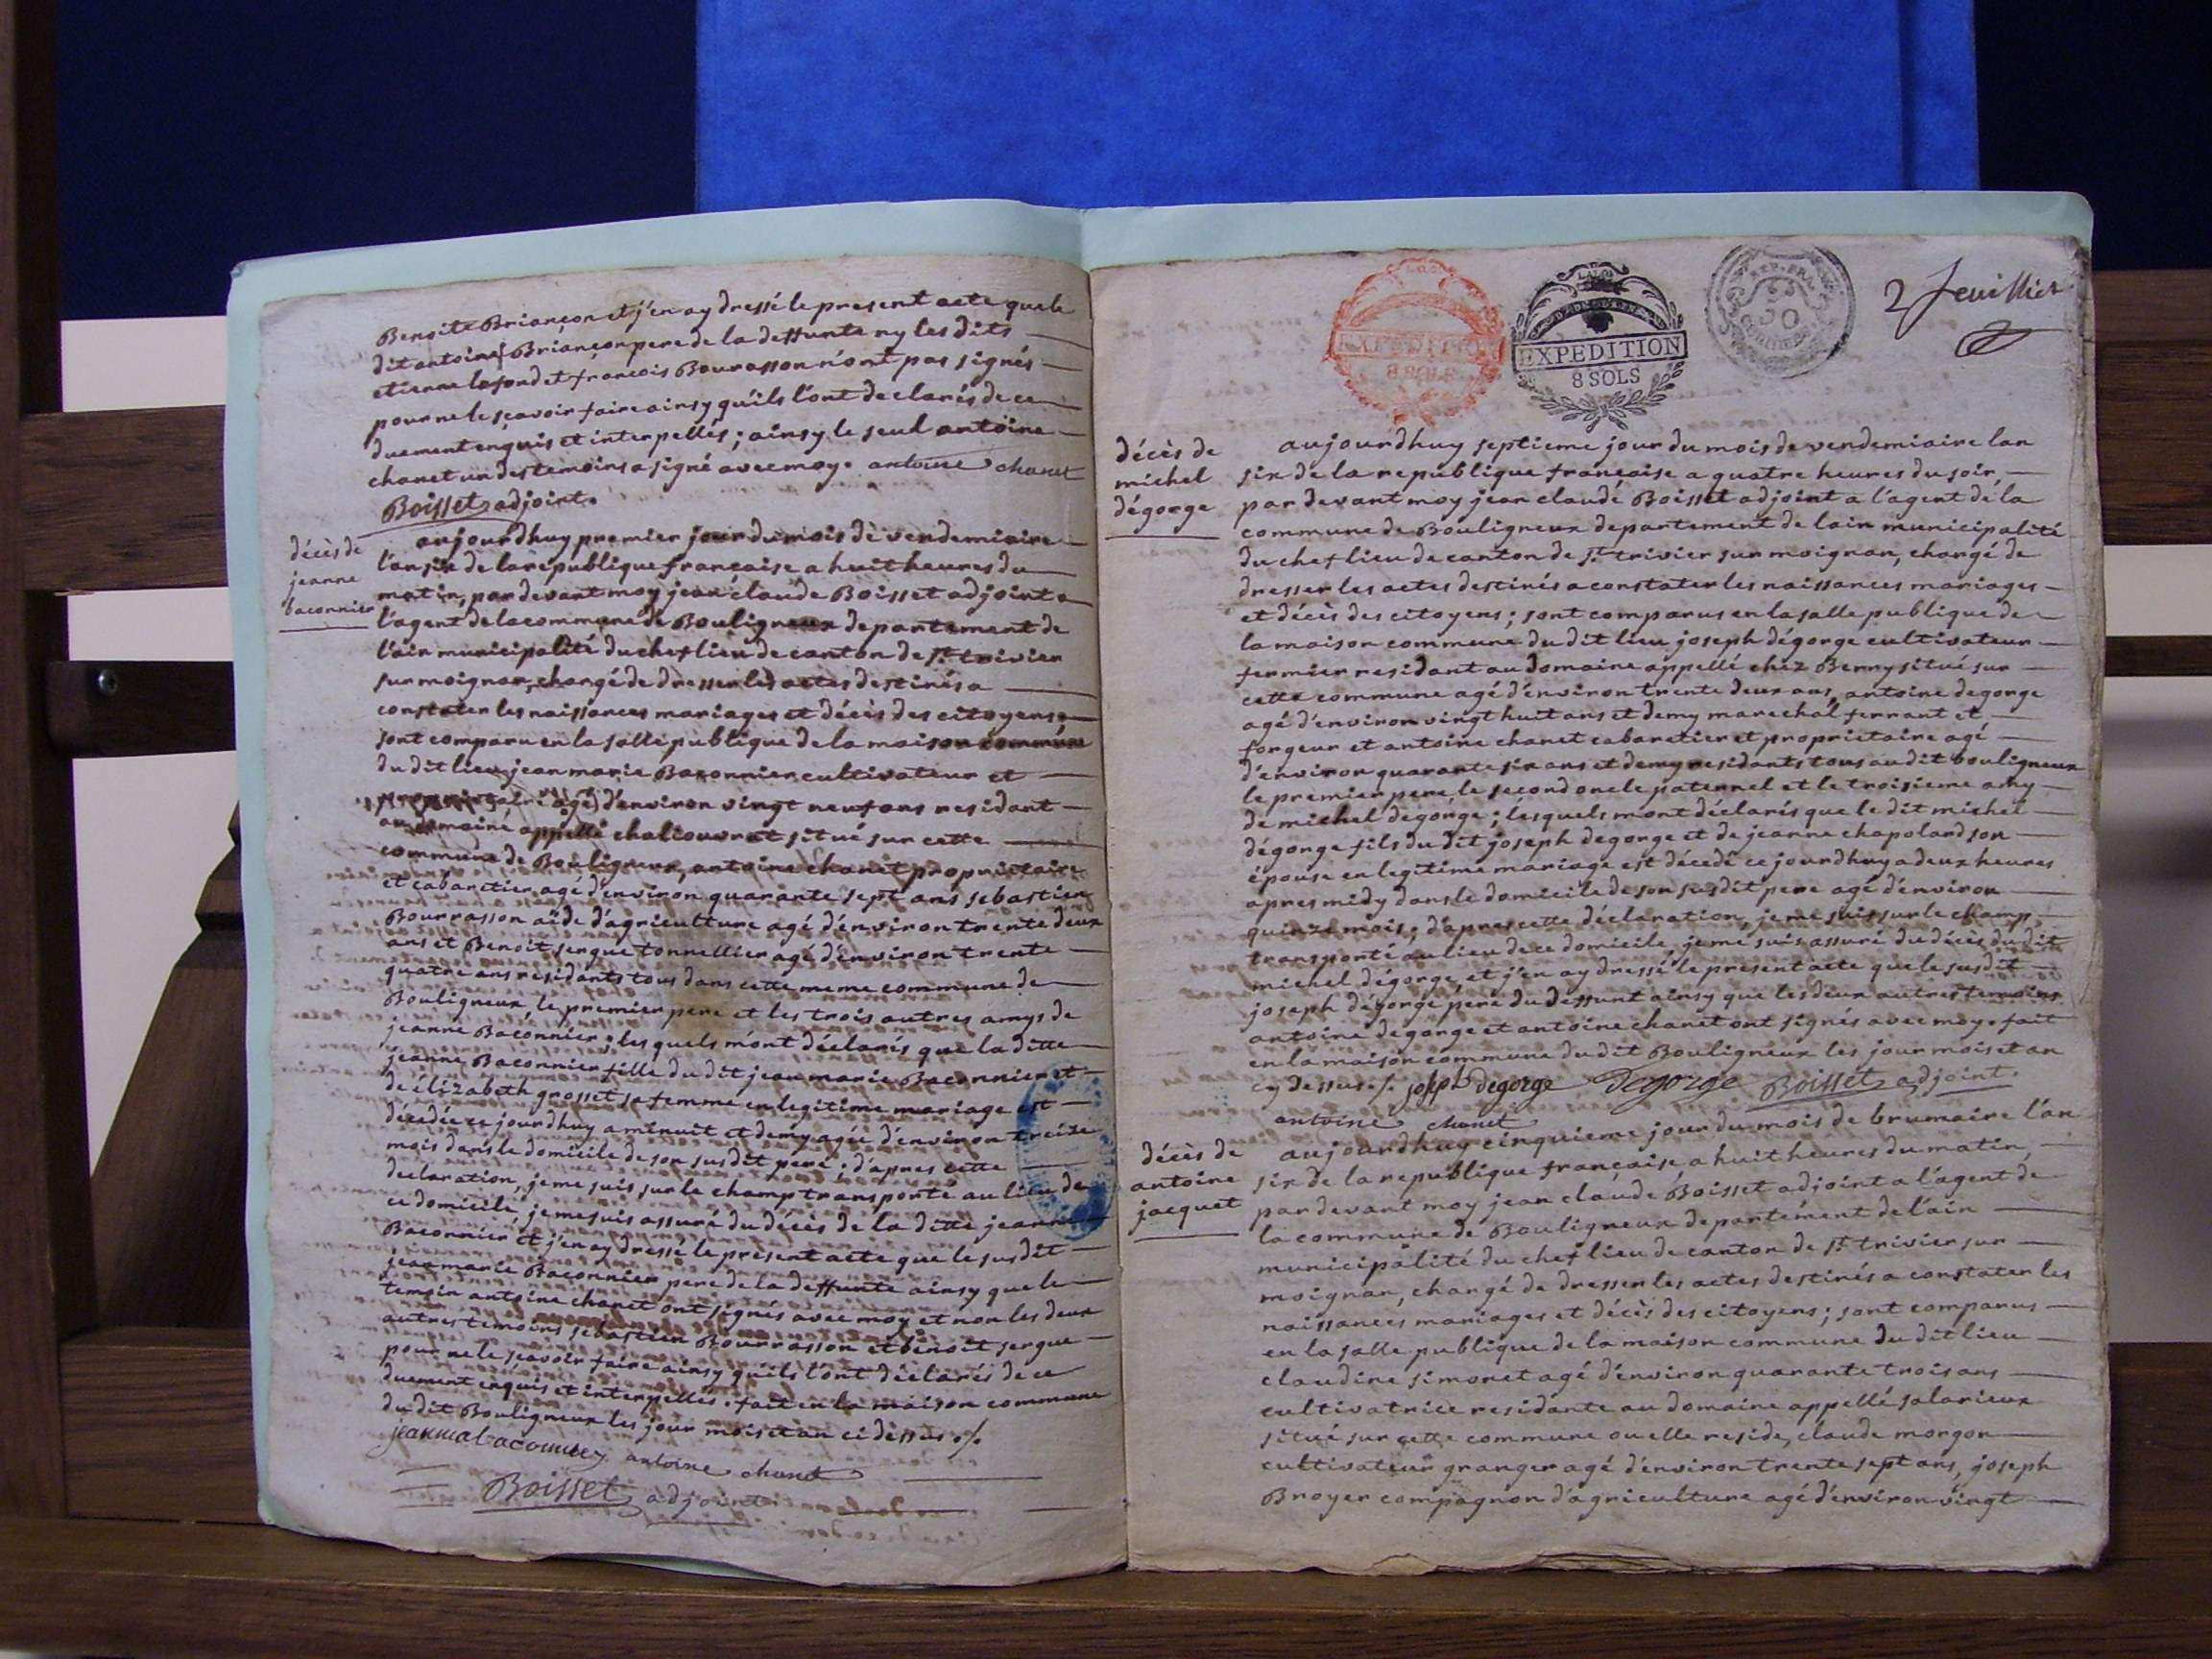 Benoite Briançon et j'en ay dressé le present acte que le
dit antoine Briançon pere de la deffunte ny les dits
etienne lafond et françois Bourasson n'ont pas signés
pour ne le sçavoir faire ainsy qu'ils l'ont declarés de ce
duement enquis et interpellés ; ainsy le seul antoine
chanet un des temoins a signé avec moy. antoine chanet
Boisset adjoint.
décès de
jeanne
baconnier
aujourdhuy premier jour du mois de vendemiaire
l'an six de la republique française a huit heures du
matin, par devant moy jean claude Boisset adjoint a
l'agent de la commune de Bouligneux departement de
l'ain municipalité du chef lieu de canton de st trivier
sur moignan, chargé de dresser les actes destinés a
constater les naissances mariages et décès des citoyens
sont comparu en la salle publique de la maison commune
du dit lieu jean marie Baconnier cultivateur et
agé d'environ vingt neuf ans residant
au domaine appellé chaliouvrat situé sur cette
commune de Bouligneux, antoine chanet proprietaire
et cabaretier agé d'environ quarante sept ans sebastien
Bourrasson aïde d'agriculture agé d'environ trente deux
ans et Benoit sergue tonnellier agé d'environ trente
quatre ans residants tous dans cette meme commune de
Bouligneux, le premier pere et les trois autres amys de
jeanne Baconnier ; les quels m'ont déclarés que la ditte
jeanne Baconnier fille du dit jean marie Baconnier et
de élizabeth grosset sa femme en legitime mariage est
décedée ce jourdhuy a minuit et demy agée d'environ treize
mois dans le domicile de son susdit pere ; d'apres cette
declaration, je me suis sur le champ transporté au lieu de
ce domicile, je me suis assuré du décès de la ditte jeanne
Baconnier et j'en ay dressé le present acte que le susdit
jean marie Baconnier pere de la deffunte ainsy que le
temoin antoine chanet ont signés avec moy et non les deux
autres temoins sebastien Bourrasson et benoit sergue
pour ne le sçavoir faire ainsy qu'ils l'ont déclarés de ce
duement enquis et interpellés. fait en la maison commune
du dit Bouligneux les jour mois et an ci dessus ./.
antoine chanet
Boisset adjoint
LA LOI
EXPEDITION
8 SOLS
LA LOI
EXPEDITION
8 SOLS
REP. FRA.
2 feuillet
décès de
michel
dégorge
aujourdhuy septieme jour du mois de vendemiaire lan
six de la republique française a quatre heures du soir,
par devant moy jean claude Boisset adjoint a l'agent de la
commune de Bouligneux departement de lain municipalité
du chef lieu de canton de st trivier sur moignan, chargé de
dresser les actes destinés a constater les naissances mariages
et décès des citoyens ; sont comparus en la salle publique de
la maison commune du dit lieu joseph dégorge cultivateur
fermier residant au domaine appellé chez Berny situé sur
cette commune agé d'environ trente deux ans, antoine degorge
agé d'environ vingt huit ans et demy marechal ferrant et
forgeur et antoine chanet cabaretier et proprietaire agé
d'environ quarante six ans et demy residants tous au dit bouligneux
le premier pere, le second oncle paternel et le troisieme amy
de michel degorge ; lesquels m'ont déclarés que le dit michel
dégorge fils du dit joseph degorge et de jeanne chapolard son
épouse en legitime mariage est décedé ce jourdhuy a deux heures
apres midy dans le domicile de son susdit pere agé d'environ
quinze mois ; d'apres cette déclaration, je me suis sur le champ
transporté au lieu de ce domicile je me suis assuré du décès du dit
michel dégorge, et j'en ay dressé le present acte que le susdit
joseph dégorge pere du deffunt ainsy que les deux autres temoins
antoine degorge et antoine chanet ont signés avec moy. fait
en la maison commune du dit Bouligneux les jour mois et an
cy dessus ./. joseph degorge Degorge Boisset adjoint.
antoine chanet
décès de
antoine
jacquet
aujourdhuy cinquieme jour du mois de brumaire l'an
six de la republique française, a huit heures du matin,
par devant moy jean claude Boisset adjoint a l'agent de
la commune de Bouligneux departement de l'ain
municipalité du chef lieu de canton de st trivier sur
moignan, chargé de dresser les actes destinés a constater les
naissances mariages et décès des citoyens ; sont comparus
en la salle publique de la maison commune du dit lieu
claudine simonet agé d'environ quarante trois ans
cultivatrice residante au domaine appellé salarieux
situé sur cette commune ou elle reside, claude morgon
cultivateur granger agé d'environ trente sept ans, joseph
Broyer compagnon d'agriculture agé d'environ vingt